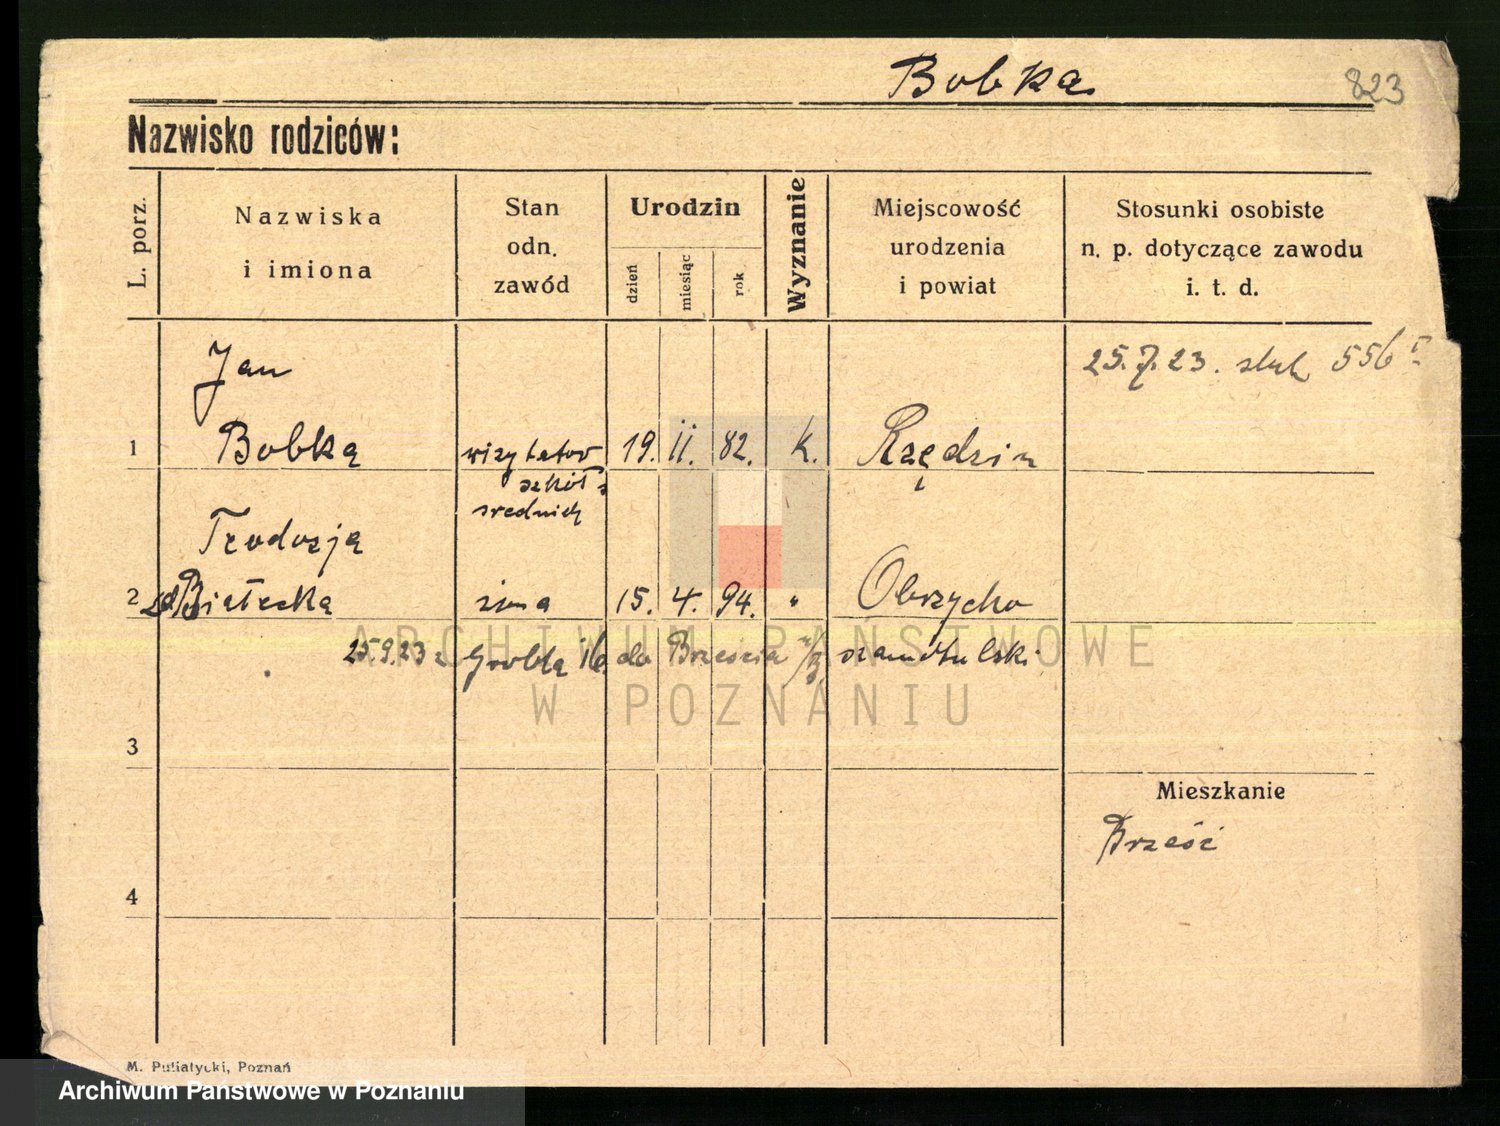 Bobka
823
Nazwisko rodziców:
L. porz.
Nazwiska
i imiona
Stan
odn.
zawód
Urodzin
dzień
miesiąc
rok
Wyznanie
Miejscowość
urodzenia
i powiat
Stosunki osobiste
n. p. dotyczące zawodu
i. t. d.
25. 7. 23. 556
Jan
1 Bobka wizytator 19. II. 82. k. Rzędzin
szkół
średnich
Teodozja
2 Białecka żona 15. 4. 94. " Obrzycko
25.9.23 z Grobla 16. do Brześcia n/B. szamotulski
ARCHIWUM PAŃSTWOWE
W POZNANIU
3
Mieszkanie
Brześć
4
M. Putiatycki, Poznań
Archiwum Państwowe w Poznaniu